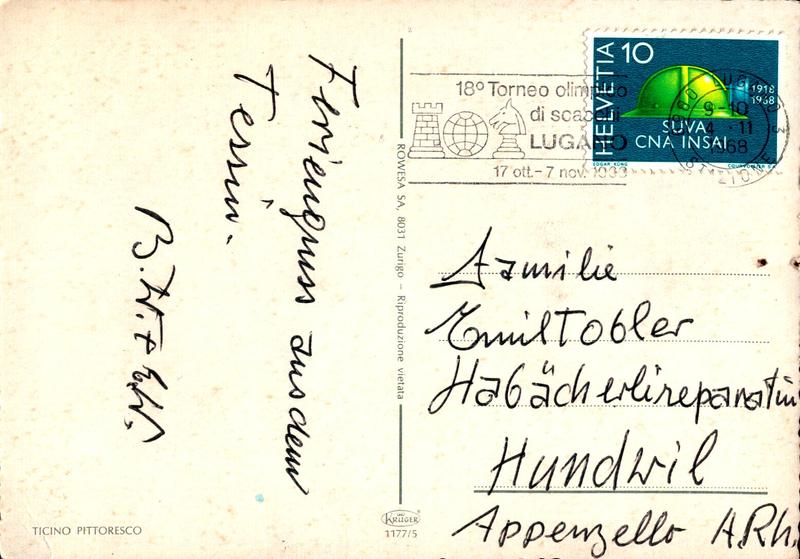 Feriengruss aus dem
Tessin.
B.W. + E.W.
TICINO PITTORESCO
ROWESA SA, 8031 Zurigo – Riproduzione vietata
KRÜGER
1177/5
18º Torneo olimpico
di scacchi
LUGANO
17 ott. - 7 nov. 1968
HELVETIA
10
1918
1968
SUVA
CNA INSAI
EDGAR KÜNG
COURVOISIER
6900 LUGANO 3
9-10
4 11
1968
STAZIONE
Familie
Emil Tobler
Habächerlireparatur
Hundwil
Appenzello A.Rh.